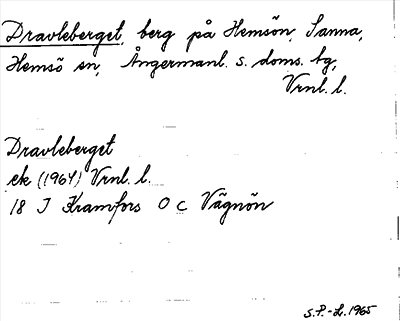 Dravleberget, berg på Hemsön, Sanna,
Hemsö sn, Ångermanl. s. doms. tg,
Vrnl. l.
Dravleberget
ek (1964) Vrnl. l.
18 J Kramfors O C Vägnön
S.P.-L. 1965